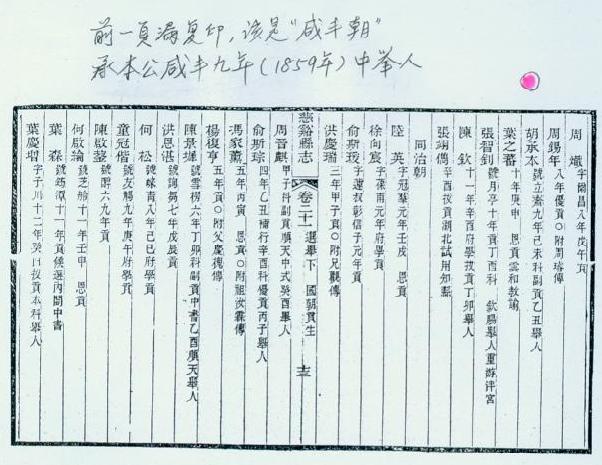 前一頁漏复印，該是“咸丰朝”
承本公咸丰九年(1859年)中举人
周熾 字爾昌八年戊午貢
周錫年 八年優貢○附周璿傳
胡承本 號立齋九年己未科副貢乙丑舉人
葉之蕃 十年庚申 恩貢雲和教諭
張智釗 號月亭十年貢丁酉科 欽賜舉人重游泮宮
陳欽 十一年辛酉府學拔貢丁卯舉人
張翊儁 辛酉拔貢湖北試用知縣
同治朝
陸英 字冠羣元年壬戌 恩貢
徐向宸 字葆甫元年府學貢
俞斯瑗 彰信子元年貢
洪慶瑞 三年甲子貢○附兄觀傳
慈谿縣志 卷二十一 選舉下 國朝貢生 十三
周晉麒 甲子科副貢順天中式癸酉舉人
俞斯琮 四年乙丑補行辛酉科優貢丙子舉人
馮家薰 五年丙寅 恩貢○附祖汝霖傳
楊復亨 五年貢○附父慶槐傳
陳景墀 號雪樓六年丁卯科副貢中書乙酉順天舉人
洪恩湛 號詢芻七年戊辰貢
何松 號崍青八年己巳府學貢
童冠偕 號友觴九年庚午府學貢
陳啟整 九年貢
何啟淪 十一年壬申 恩貢
葉森 十一年貢候選內閣中書
葉慶增 字子川十二年癸酉拔貢本科舉人